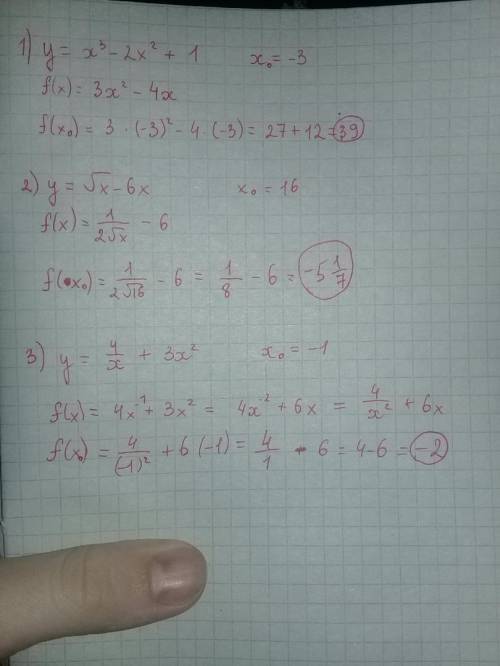 1) y = x³ - 2x² + 1 x₀ = -3
f(x) = 3x² - 4x
f(x₀) = 3 · (-3)² - 4 · (-3) = 27 + 12 = 39
2) y = √x - 6x x₀ = 16
f(x) = 1/(2√x) - 6
f(x₀) = 1/(2√16) - 6 = 1/8 - 6 = -5 1/7
3) y = 4/x + 3x² x₀ = -1
f(x) = 4x⁻¹ + 3x² = 4x⁻² + 6x = 4/x² + 6x
f(x₀) = 4/(-1)² + 6(-1) = 4/1 - 6 = 4 - 6 = -2